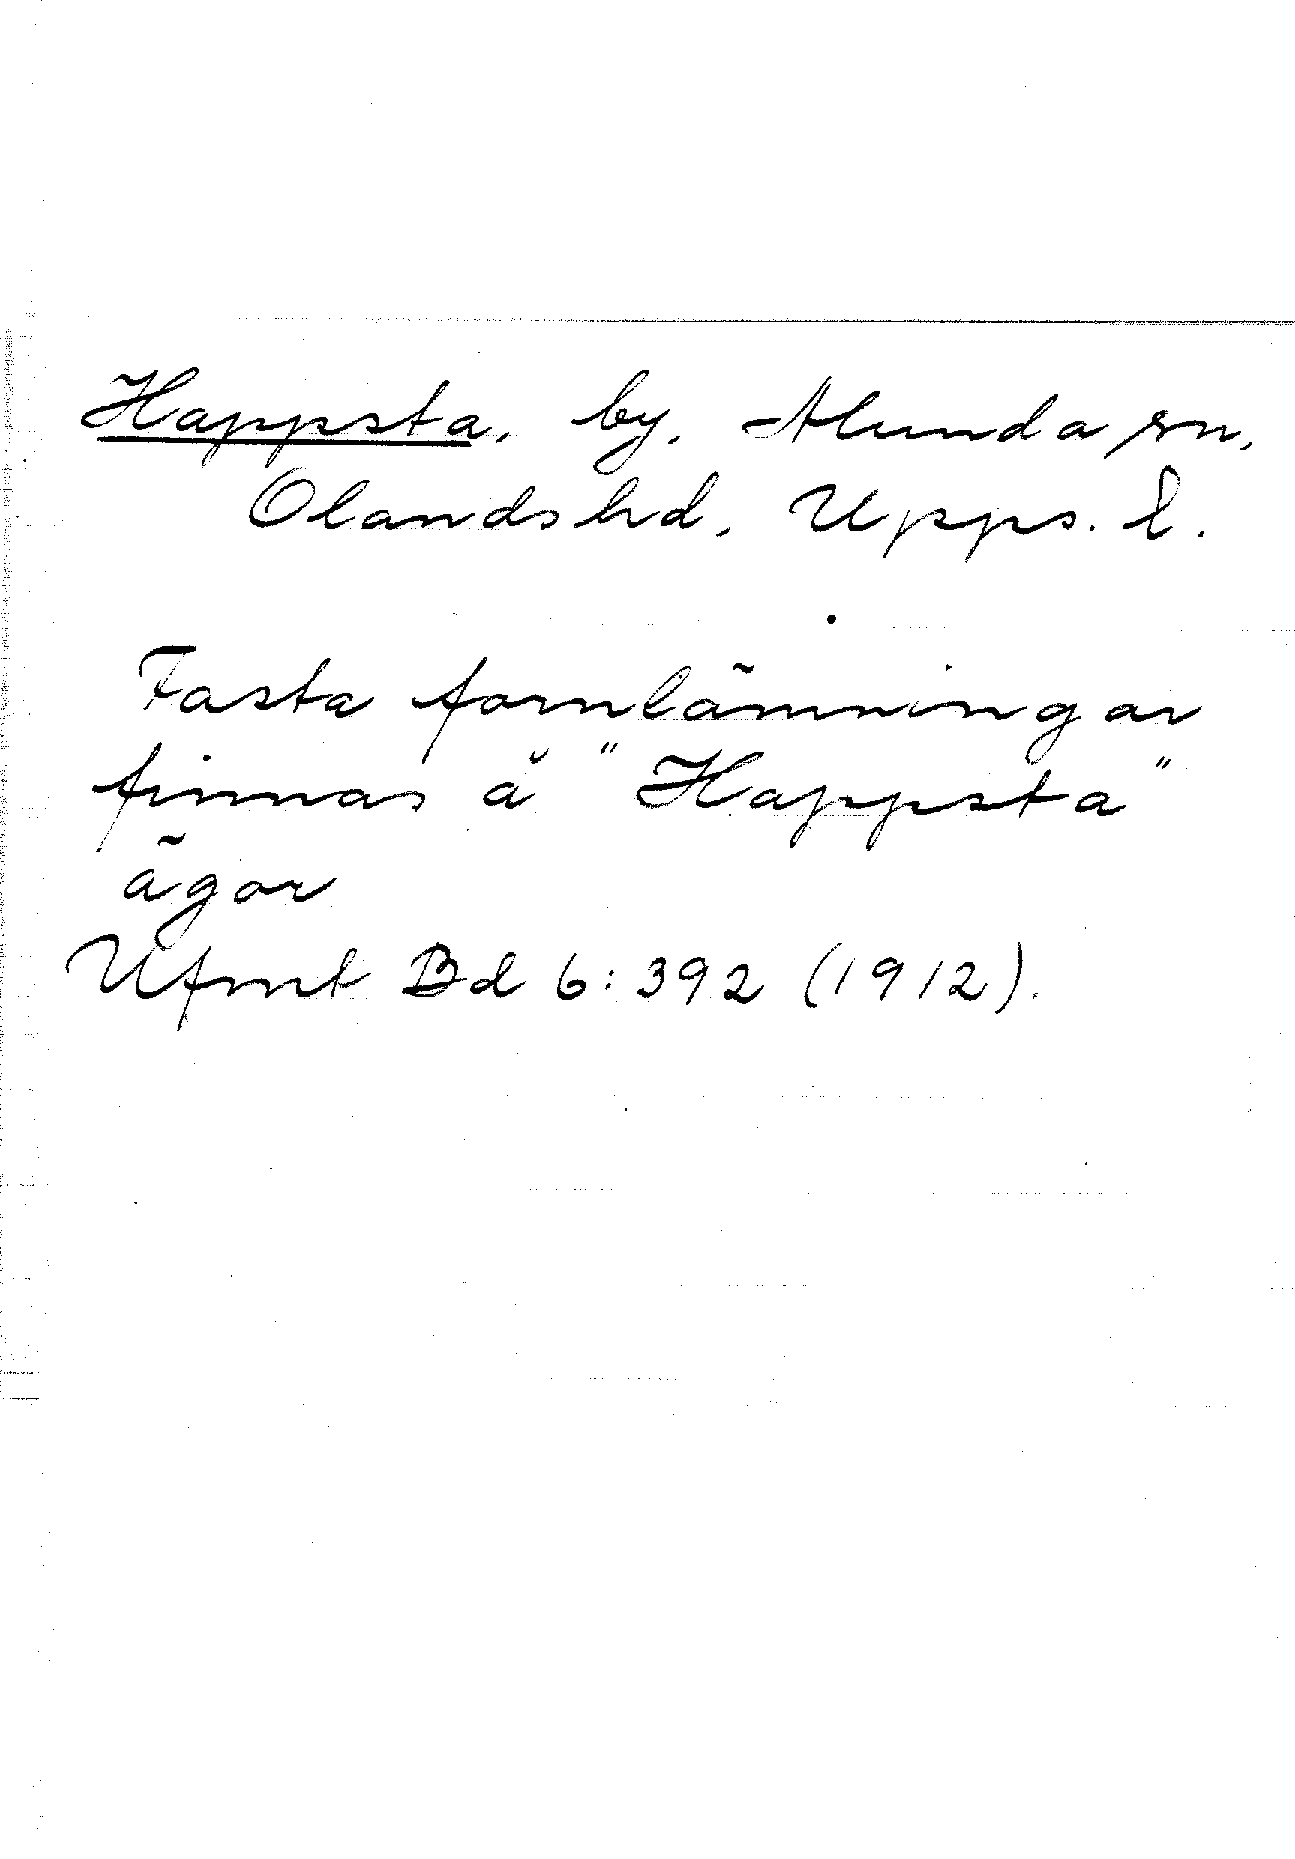 Happsta, by, Alunda sn,
Olands hd, Upps. l.
Fasta fornlämningar
finnas å "Happsta"
ägor
Ufmt Bd 6: 392 (1912).